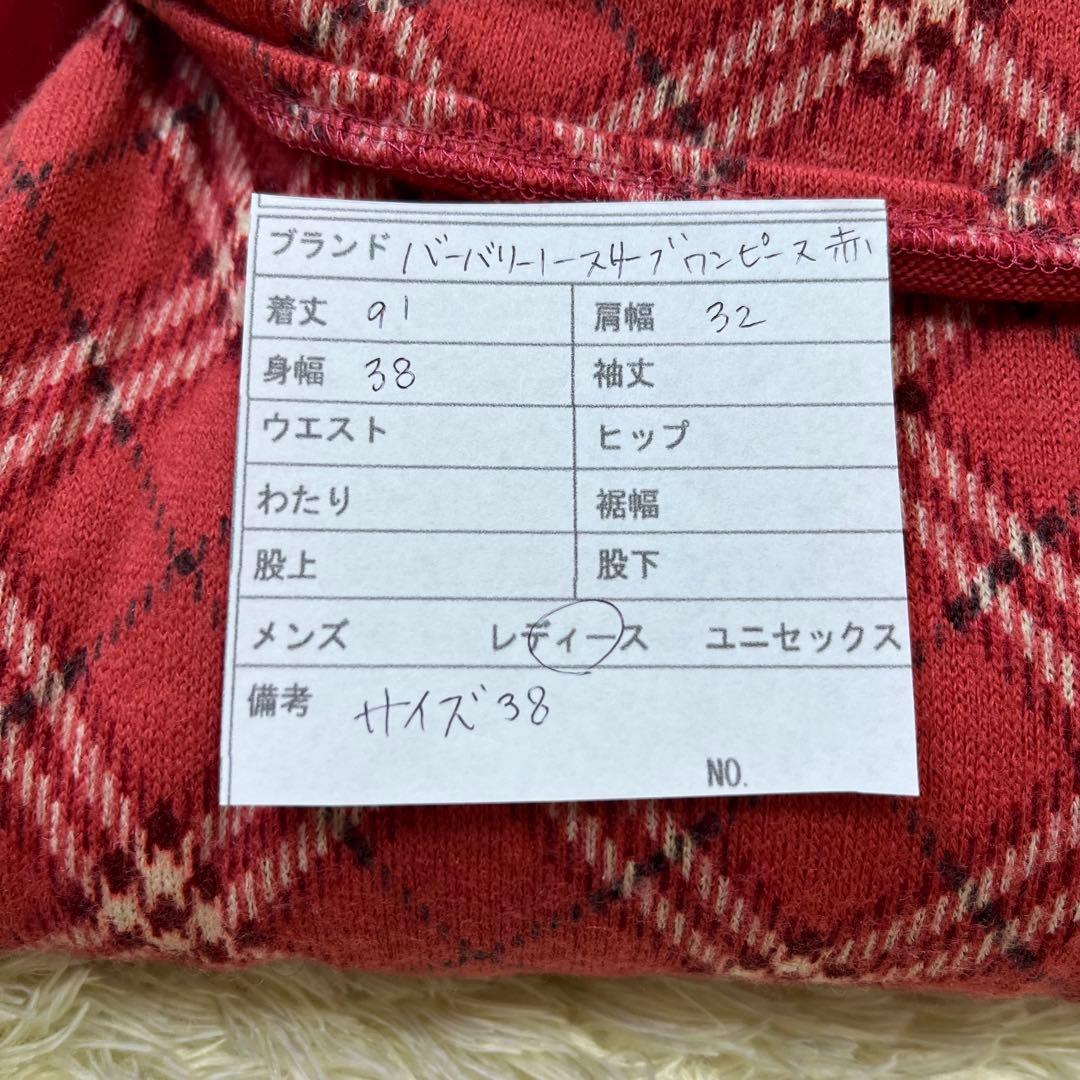 ブランド バーバリーノースリーブワンピース赤
着丈 91 肩幅 32
身幅 38 袖丈
ウエスト ヒップ
わたり 裾幅
股上 股下
メンズ レディース ユニセックス
備考 サイズ38
NO.